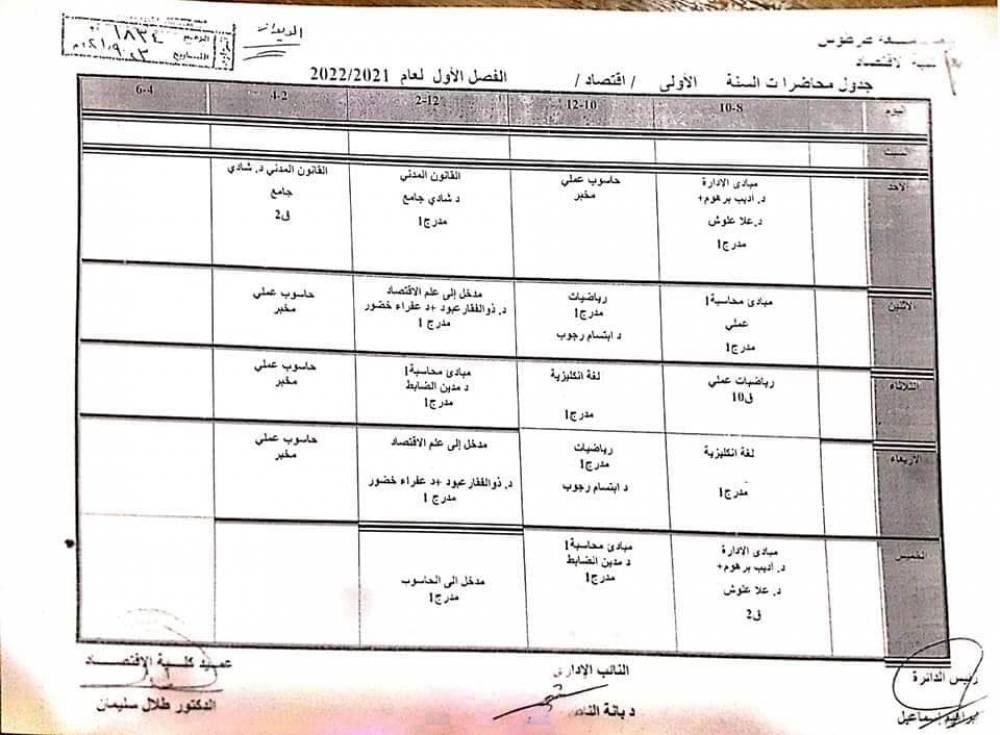 الديوان
الرقم ١٨٣٤
التاريخ
جامعة طرطوس
كلية الاقتصاد
جدول محاضرات السنة الأولى / اقتصاد / الفصل الأول لعام 2022/2021
اليوم 10-8 12-10 2-12 4-2 6-4
السبت
الأحد
مبادئ الإدارة
د. أديب برهوم+
د. علا علوش
مدرج1
حاسوب عملي
مخبر
القانون المدني
د شادي جامع
مدرج1
القانون المدني د. شادي
جامع
ق2
الاثنين
مبادئ محاسبة1
عملي
مدرج1
رياضيات
مدرج1
د ابتسام رجوب
مدخل إلى علم الاقتصاد
د. ذوالفقار عبود +د عفراء خضور
مدرج 1
حاسوب عملي
مخبر
الثلاثاء
رياضيات عملي
ق10
لغة انكليزية
مدرج1
مبادئ محاسبة1
د مدين الضابط
مدرج1
حاسوب عملي
مخبر
الأربعاء
لغة انكليزية
مدرج1
رياضيات
مدرج1
د ابتسام رجوب
مدخل إلى علم الاقتصاد
د. ذوالفقار عبود +د عفراء خضور
مدرج 1
حاسوب عملي
مخبر
الخميس
مبادئ الادارة
د. أديب برهوم+
د. علا علوش
ق2
مبادئ محاسبة1
د مدين الضابط
مدرج1
مدخل الى الحاسوب
مدرج1
رئيس الدائرة
اسماعيل
النائب الإداري
د بانة
عميد كلية الاقتصاد
الدكتور طلال سليمان